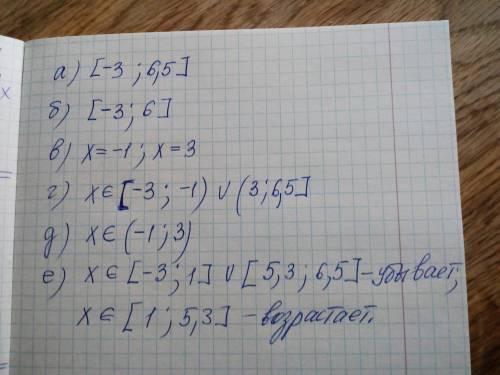 а) [-3 ; 6,5]
б) [-3 ; 6]
в) x = -1 ; x = 3
г) x ∈ [-3 ; -1) ∪ (3 ; 6,5]
д) x ∈ (-1 ; 3)
е) x ∈ [-3 ; 1] ∪ [5,3 ; 6,5] - убывает;
x ∈ [1 ; 5,3] - возрастает.